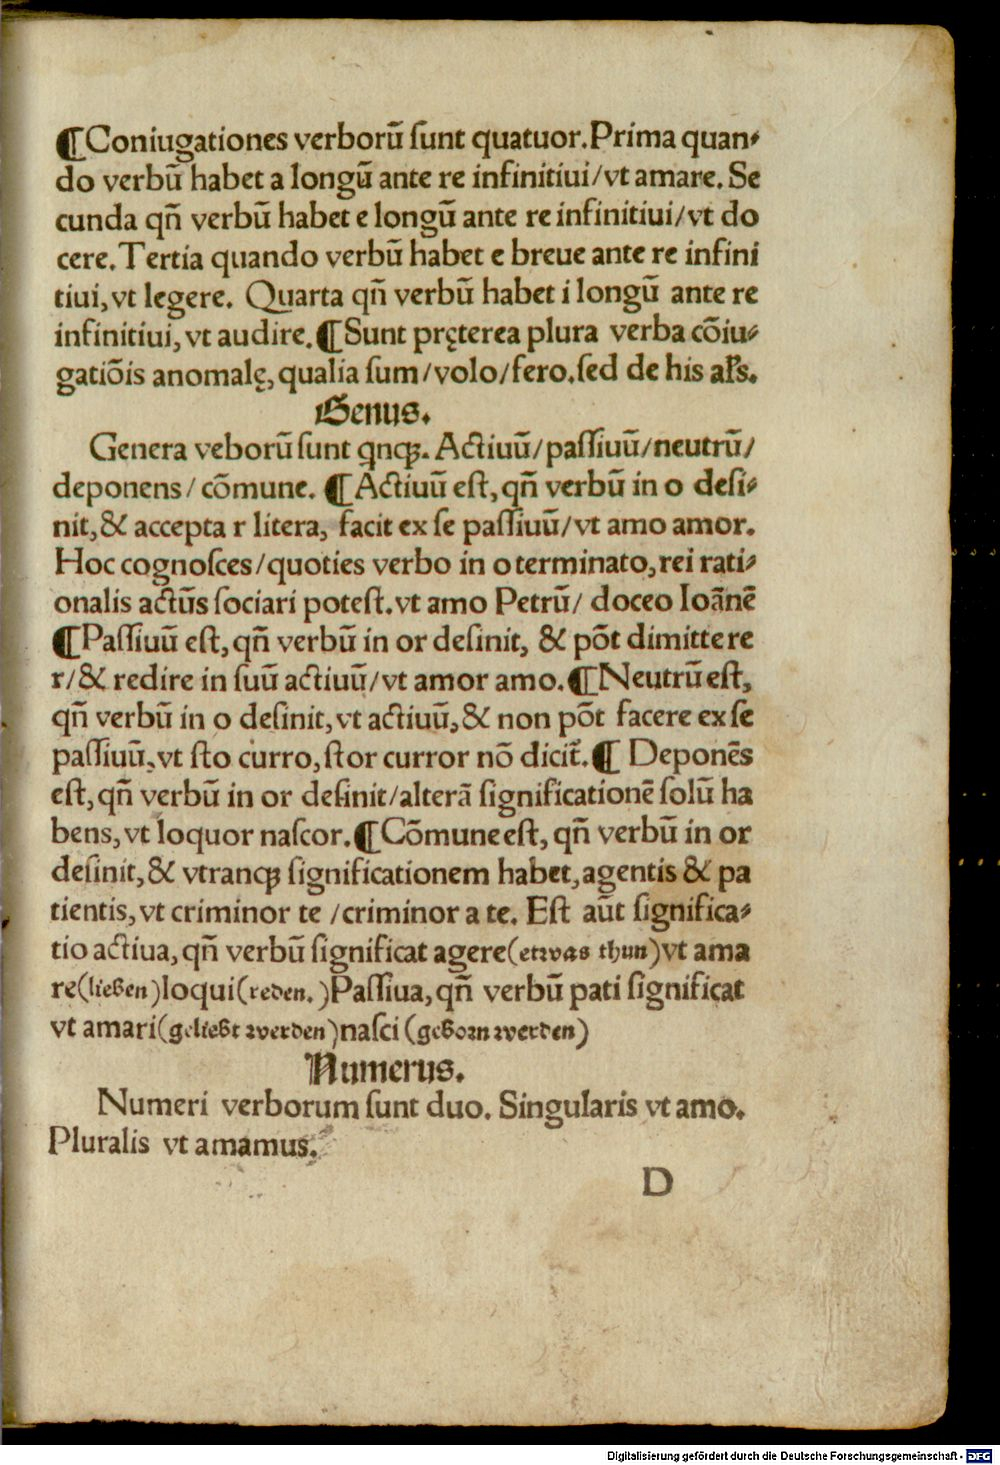 ¶Coniugationes verborū ſunt quatuor. Prima quan⸗
do verbū habet a longū ante re infinitiui/vt amare. Se
cunda qñ verbū habet e longū ante re infinitiui/vt do
cere. Tertia quando verbū habet e breue ante re infini
tiui, vt legere. Quarta qñ verbū habet i longū ante re
infinitiui, vt audire. ¶Sunt pręterea plura verba cōiu⸗
gatiōis anomalę, qualia ſum/volo/fero. ſed de his
Genus.
Genera veborū ſunt qnqꝫ. Actiuū/paſſiuū/neutrū/
deponens/cōmune. ¶Actiuū eſt, qñ verbū in o deſi⸗
nit, & accepta r litera, facit ex ſe paſſiuū/vt amo amor.
Hoc cognoſces/quoties verbo in o terminato, rei rati⸗
onalis actūs ſociari poteſt. vt amo Petrū/ doceo Ioānē
¶Paſſiuū eſt, qñ verbū in or deſinit, & pōt dimittere
r/& redire in ſuū actiuū/vt amor amo. ¶Neutrū eſt,
qñ verbū in o deſinit, vt actiuū, & non pōt facere ex ſe
paſſiuū, vt ſto curro, ſtor curror nō dicit̄. ¶ Deponēs
eſt, qñ verbū in or deſinit/alterā ſignificationē ſolū ha
bens, vt loquor naſcor. ¶Cōmune eſt, qñ verbū in or
deſinit, & vtranqꝫ ſignificationem habet, agentis & pa
tientis, vt criminor te /criminor a te. Eſt aūt ſignifica⸗
tio actiua, qñ verbū ſignificat agere(etwas thun)vt ama
re(lieben)loqui(reden.)Paſſiua, qñ verbū pati ſignificat
vt amari(geliebt werden)naſci (geborn werden)
Numerus.
Numeri verborum ſunt duo. Singularis vt amo.
Pluralis vt amamus.
D
Digitalisierung gefördert durch die Deutsche Forschungsgemeinschaft - DFG